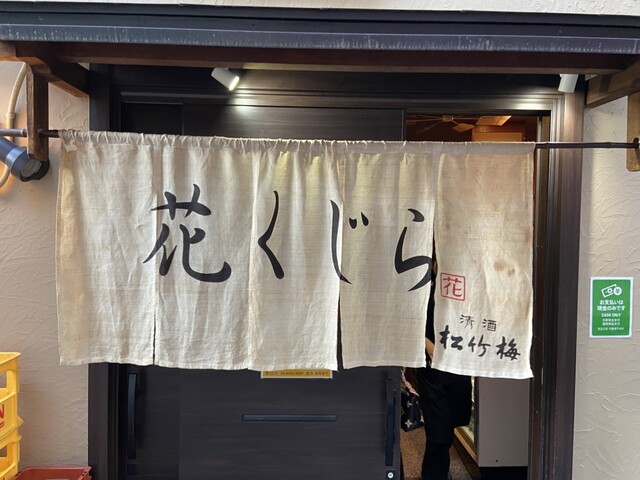 花くじら
花
清酒
松竹梅
お支払いは
現金のみです
CASH ONLY